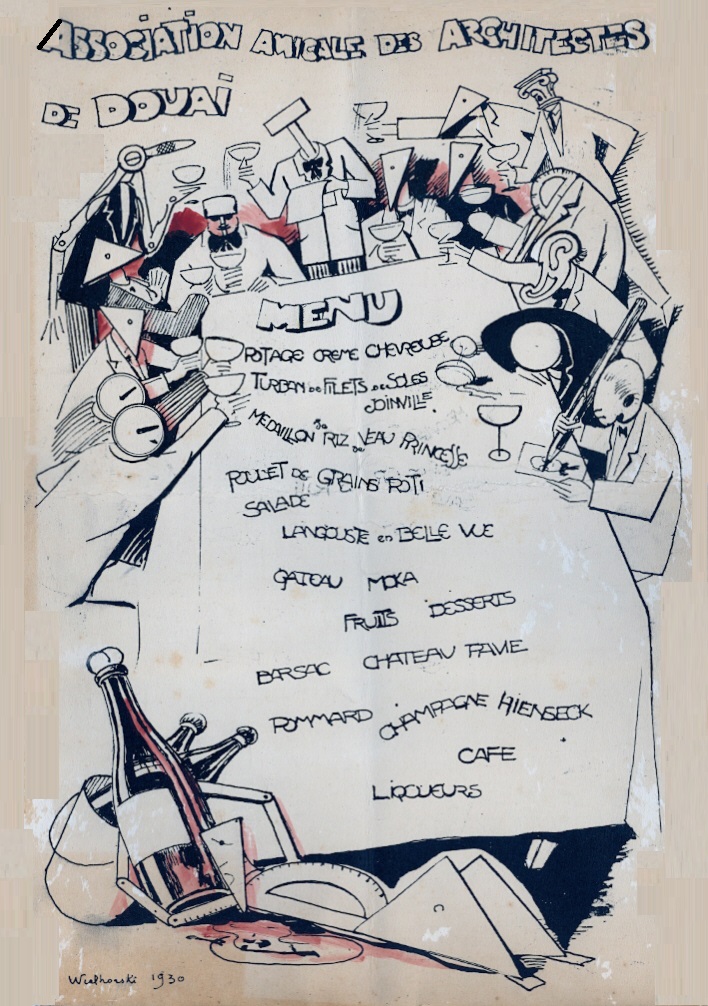 ASSOCIATION AMICALE DES ARCHITECTES
DE DOUAI
MENU
POTAGE CREME CHEVREUSE
TURBAN DE FILETS DE SOLES
JOINVILLE
MEDAILLON DE RIZ DE VEAU PRINCESSE
POULET DE GRAINS ROTI
SALADE
LANGOUSTE en BELLE VUE
GATEAU MOKA
FRUITS DESSERTS
BARSAC CHATEAU FAVIE
POMMARD CHAMPAGNE HIENSECK
CAFE
LIQUEURS
Wielhorski 1930